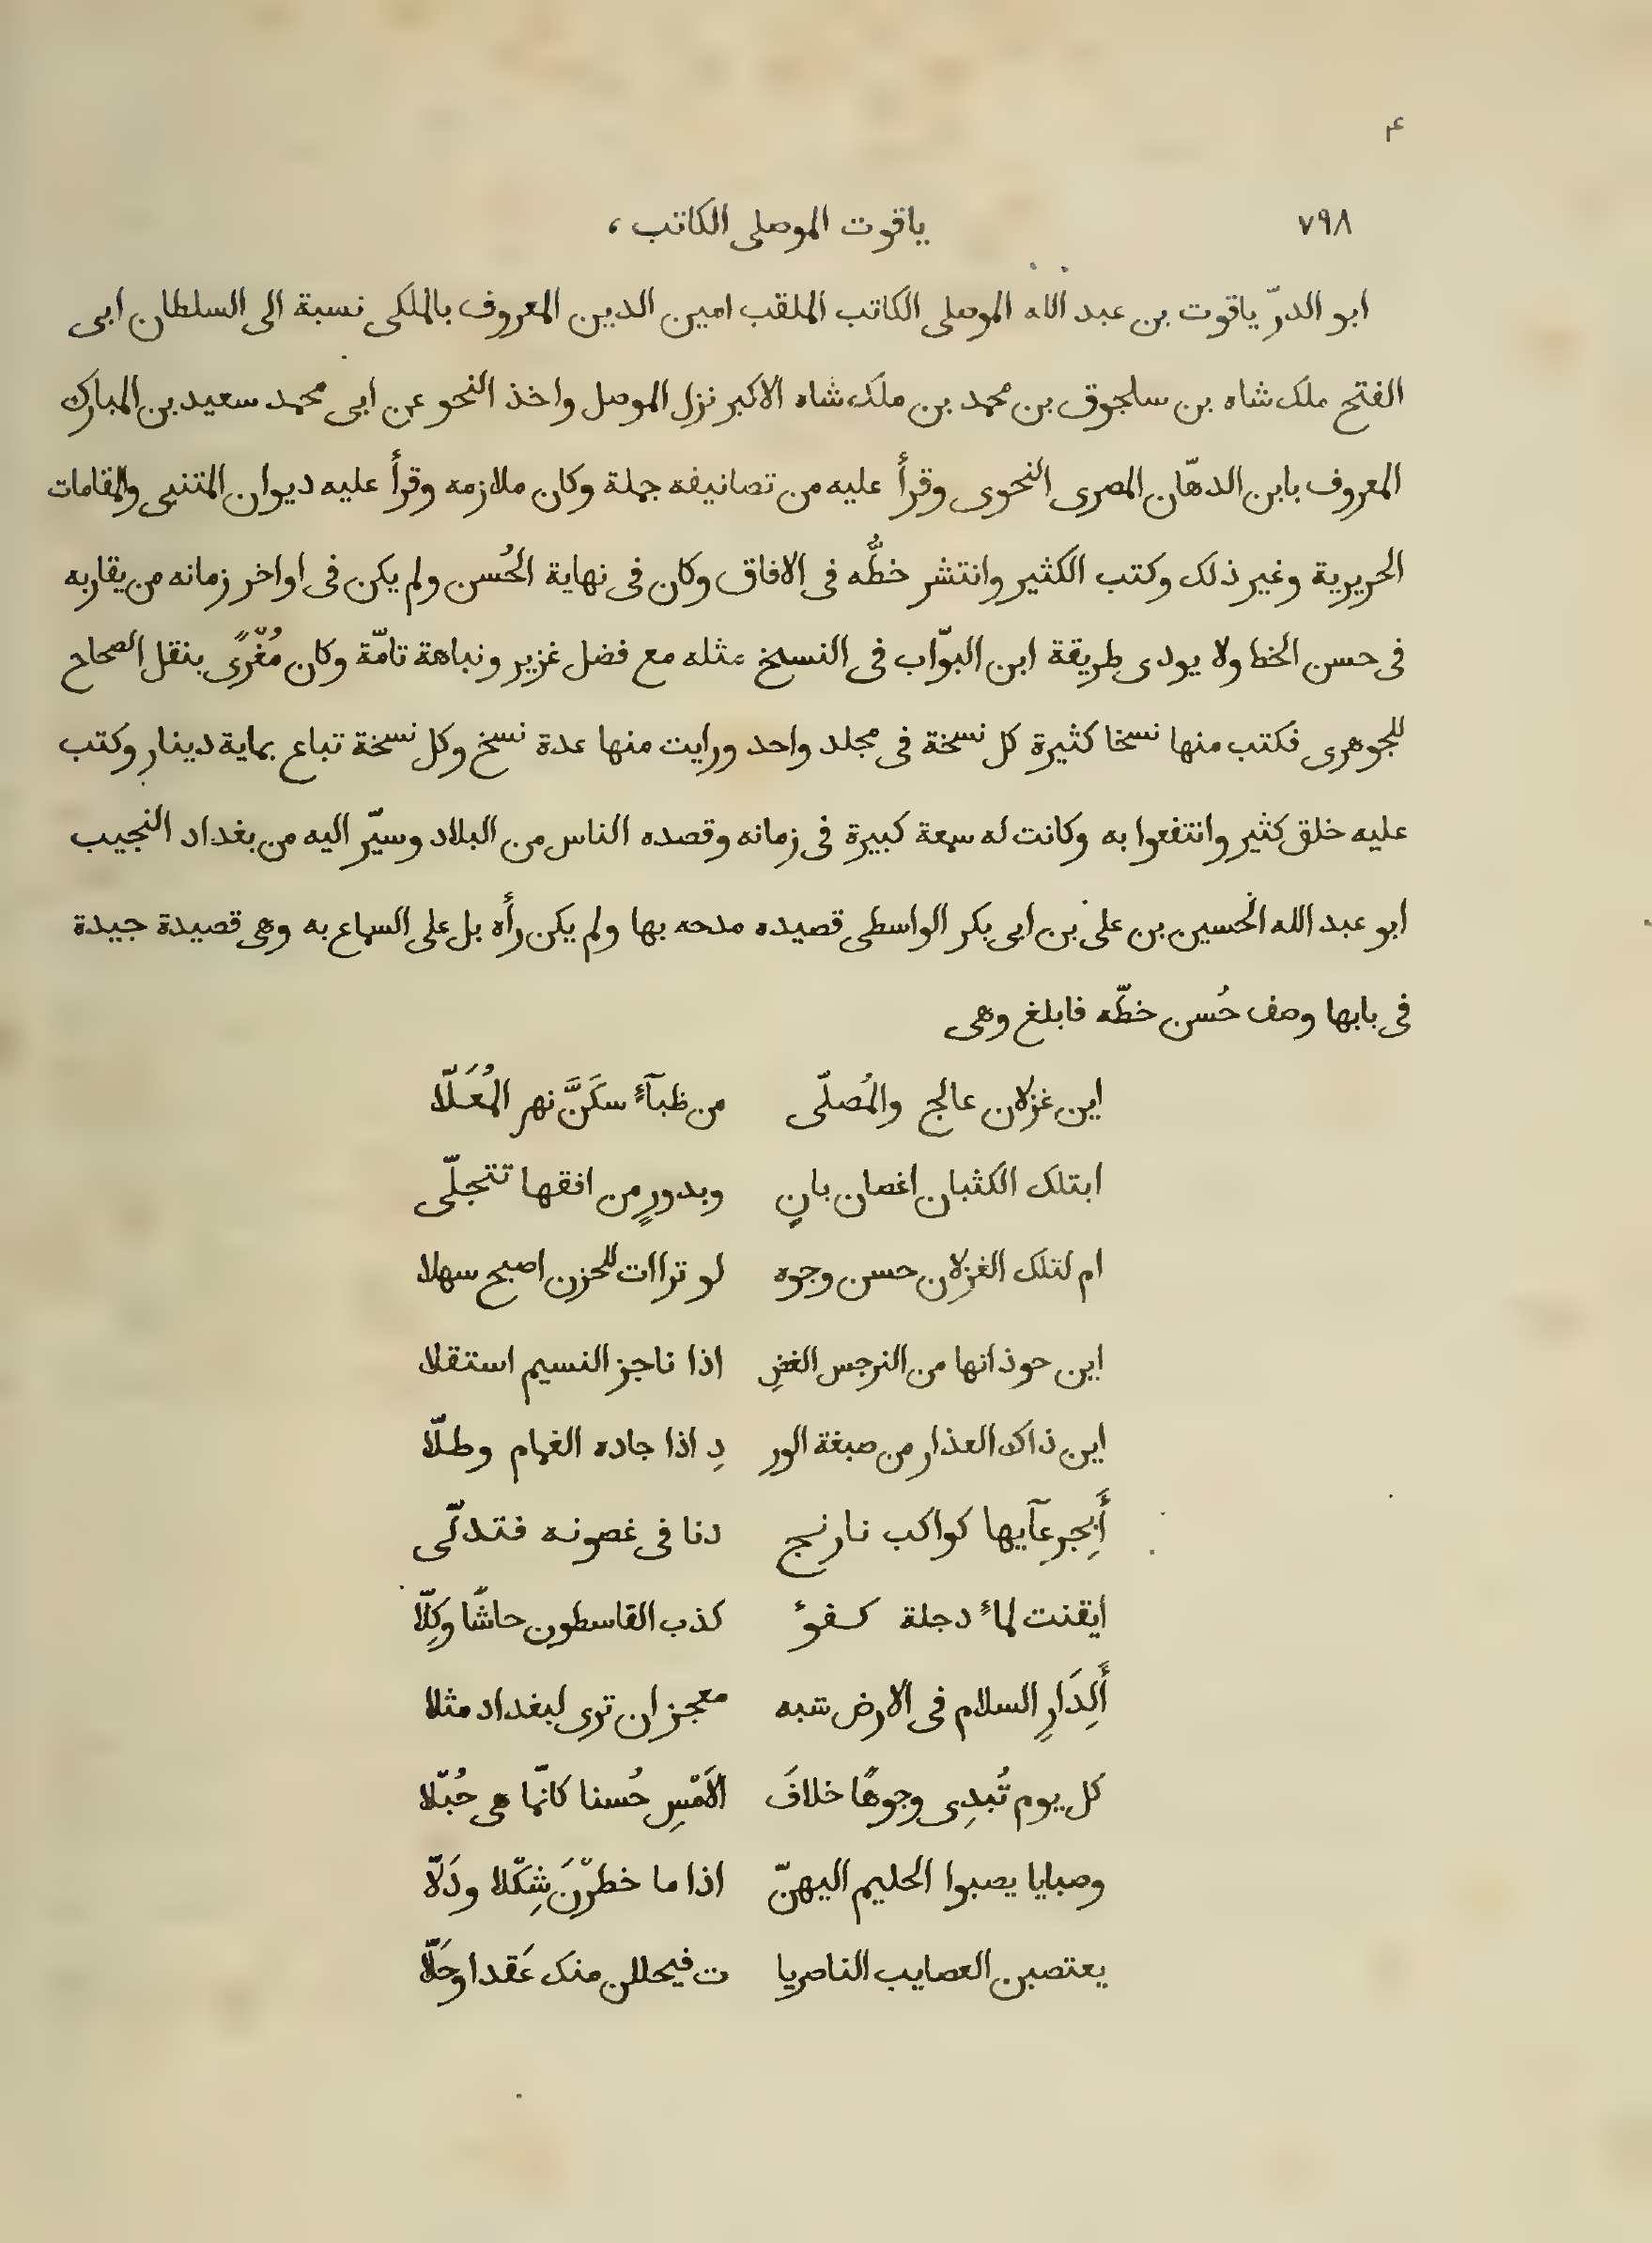 ۴
٧٩٨ ياقوت الموصلى الكاتب ،
ابو الدرّ ياقوت بن عبد الله الموصلى الكاتب الملقب امين الدين المعروف بالملكى نسبة الى السلطان ابى
الفتح ملك شاه بن سلجوق بن محمد بن ملك شاه الاكبر نزل الموصل واخذ النحو عن ابى محمد سعيد بن المبارك
المعروف بابن الدهّان المصرى النحوى وقرأ عليه من تصانيفه جملة وكان ملازمه وقرأ عليه ديوان المتنبى والمقامات
الحريرية وغير ذلك وكتب الكثير وانتشر خطُّه فى الافاق وكان فى نهاية الحُسن ولم يكن فى اواخر زمانه من يقاربه
فى حسن الخط ولا يودى طريقة ابن البوّاب فى النسخ مثله مع فضل غزير ونباهة تامّة وكان مُغْرًى بنقل الصحاح
للجوهرى فكتب منها نسخا كثيرة كل نسخة فى مجلد واحد ورايت منها عدة نسخ وكل نسخة تباع بماية دينار وكتب
عليه خلق كثير وانتفعوا به وكانت له سمعة كبيرة فى زمانه وقصده الناس من البلاد وسيّر اليه من بغداد النجيب
ابو عبد الله الحسين بن على بن ابى بكر الواسطى قصيده مدحه بها ولم يكن رأه بل على السماع به وهى قصيدة جيدة
فى بابها وصف حُسن خطّه فابلغ وهى
اين غزلان عالج والمُصلّى من ظبآءٔ سكَنَّ نهر المُعَلّا
ابتلك الكثبان اغصان بانٍ وبدورٍ من افقها تتجلّى
ام لتلك الغزلان حسن وجوه لو تراات للحزن اصبح سهلا
اين حوذانها من النرجس الغضِ اذا ناجز النسيم استقلا
اين ذاك العذار من صبغة الور دِ اذا جاده الغمام وطلّا
أَبِجرعآيها كواكب نارنج دنا فى غصونه فتدلّى
ايقنت لماءٔ دجلة كفؤ كذب القاسطون حاشّا وكِلّا
أَلِدَارِ السلام فى الارض شبه معجز ان ترى لبغداد مثلا
كل يوم تُبدِى وجوهًا خلافَ الاَمْسِ حُسنا كانّما هى حُبّلا
وصبايا يصبوا الحليم اليهنّ اذا ما خطرْنَ شِكّلا ودَلّا
يعتصبن العصايب الناصريا ت فيحللن منك عَقدا وحَلّا